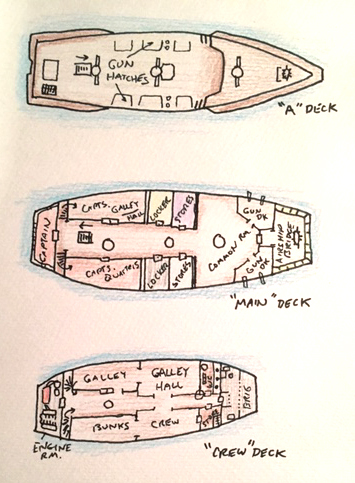 GUN
HATCHES
"A" DECK
CAPTS. GALLEY
HALL
LOCKER
STORES
GUN
DK
CAPTAIN
COMMON RM.
AIRSHIP
BRIDGE
CAPTS.
QUARTERS
LOCKER
STORES
GUN
DK
"MAIN" DECK
GALLEY
GALLEY
HALL
BRIG
BUNKS
CREW
ENGINE
RM.
"CREW" DECK